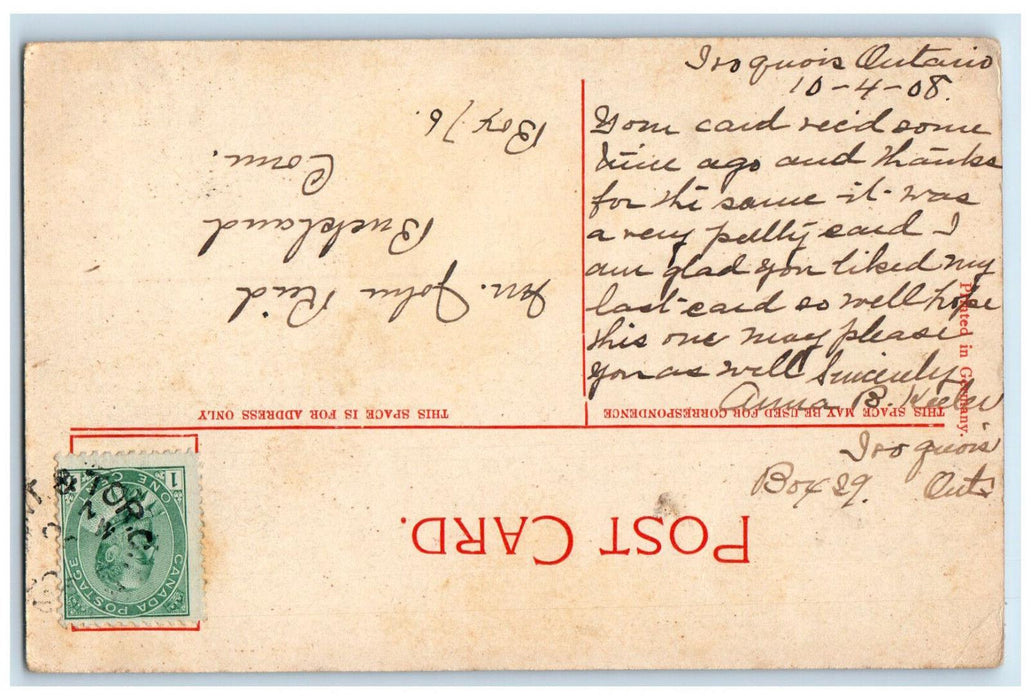 Iroquois Ontario
10-4-08.
Your card rec'd some
time ago and thanks
for the same it was
a very pretty card I
am glad you liked my
last card so well hope
this one may please
you as well Sincerely
Anna B.
Iroquois
Box 29. Ont.
Printed in Germany.
POST CARD.
THIS SPACE MAY BE USED FOR CORRESPONDENCE
THIS SPACE IS FOR ADDRESS ONLY
Mr. John Reid
Buckland
Conn.
Box 76.
CANADA POSTAGE
ONE C
1
& TOR.